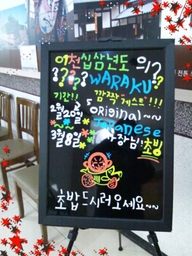 이천십삼년도
????WARAKU?
기간!! 깜짝게스트!!!
2월20일 original~~
Japanese
3월8일 사장님! 초빙
초밥드시러오세요~~